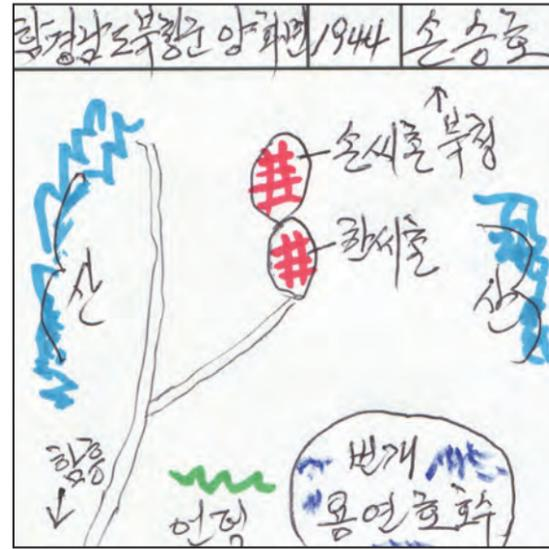 함경남도북청군 양화면 1944 손승호
↑
북청
손씨촌
한씨촌
산
산
함흥
↓
언덕
번개
용연호호수